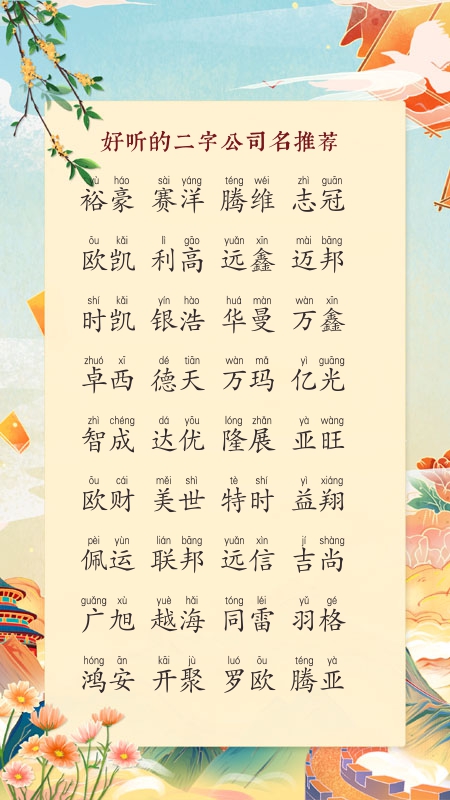 好听的二字公司名推荐
yù háo sài yáng téng wéi zhì guān
裕豪 赛洋 腾维 志冠
ōu kǎi lì gāo yuǎn xīn mài bāng
欧凯 利高 远鑫 迈邦
shí kǎi yín hào huá màn wàn xīn
时凯 银浩 华曼 万鑫
zhuó xī dé tiān wàn mǎ yì guāng
卓西 德天 万玛 亿光
zhì chéng dá yōu lóng zhǎn yà wàng
智成 达优 隆展 亚旺
ōu cái měi shì tè shí yì xiáng
欧财 美世 特时 益翔
pèi yùn lián bāng yuǎn xìn jí shàng
佩运 联邦 远信 吉尚
guǎng xù yuè hǎi tóng léi yǔ gé
广旭 越海 同雷 羽格
hóng ān kāi jù luó ōu téng yà
鸿安 开聚 罗欧 腾亚